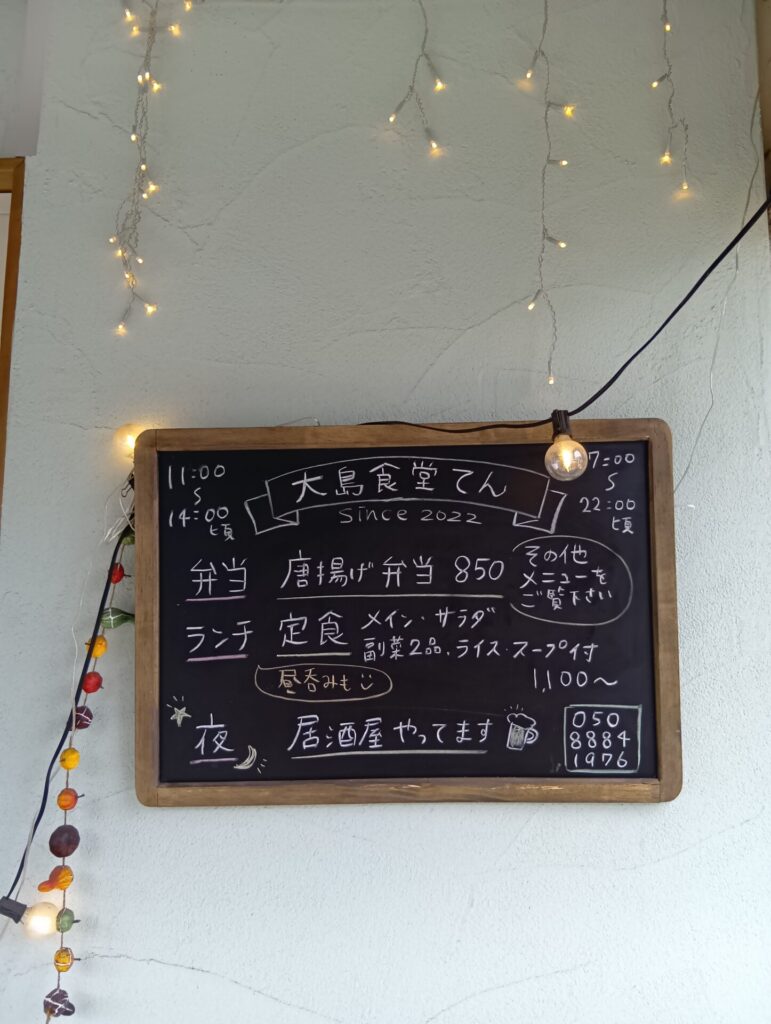 大島食堂てん
since 2022
11:00
〜
14:00
頃
7:00
〜
22:00
頃
弁当 唐揚げ弁当 850
その他
メニューを
ご覧下さい
ランチ 定食 メイン・サラダ
副菜2品、ライス・スープ付
1,100〜
昼呑みも
夜 居酒屋やってます
050
8884
1976